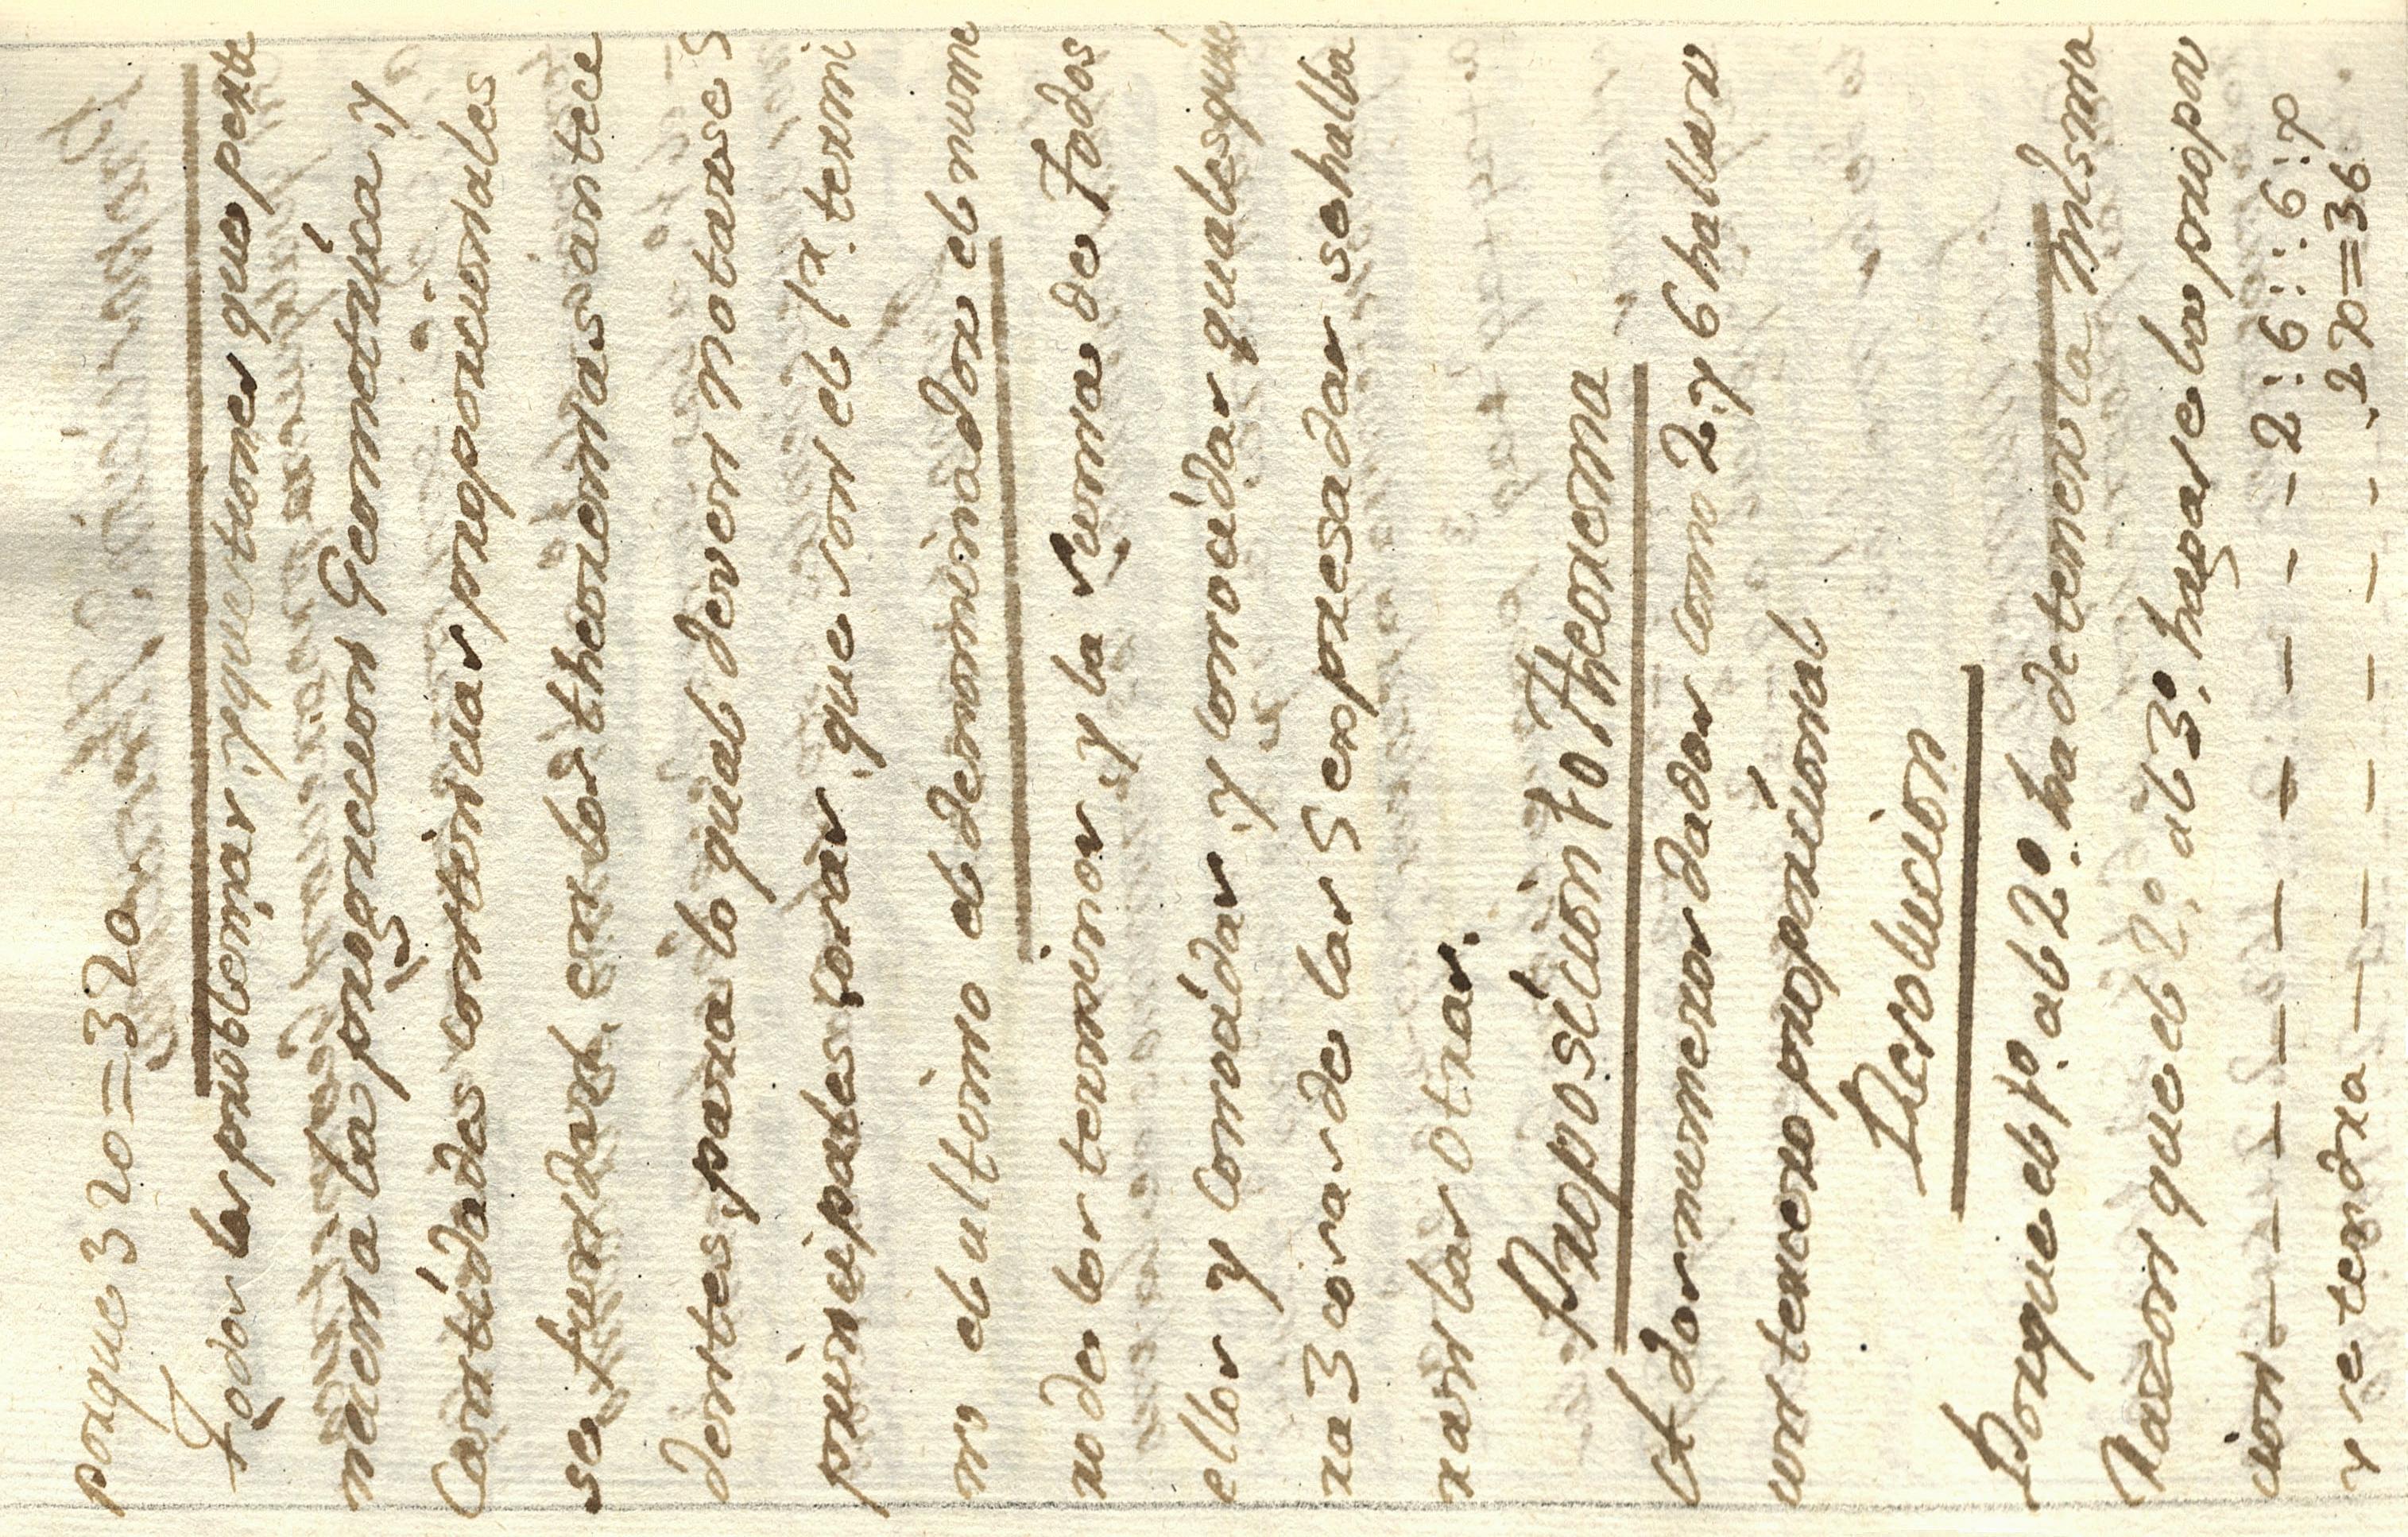 porque 320=320.
Todos los problemas, y questiones que perte
necen a la progrecion Geometrica, y
Cantidades continuas proporcionales
se fundan en los theoremas antece
dentes para lo qual deven notarse 5
principales cosas que son el 1r. termi
no el ultimo el denominador el nume
ro de los terminos y la suma de todos
ellos y conosidas y conocidas qualesquie
ra 3 cosas de las 5 expresadas se halla
ran las otras.
Propposicion 10 Theorema
A dos numeros dados como 2 y 6 hallar
un tercero proporcional
Resolucion
Porque el 1º al 2º ha de tener la Misma
Razon que el 2º al 3º hagase la propor
cion - - - - - - - - - - 2:6::6:x
y se tendra - - - - - - - - 2x=36